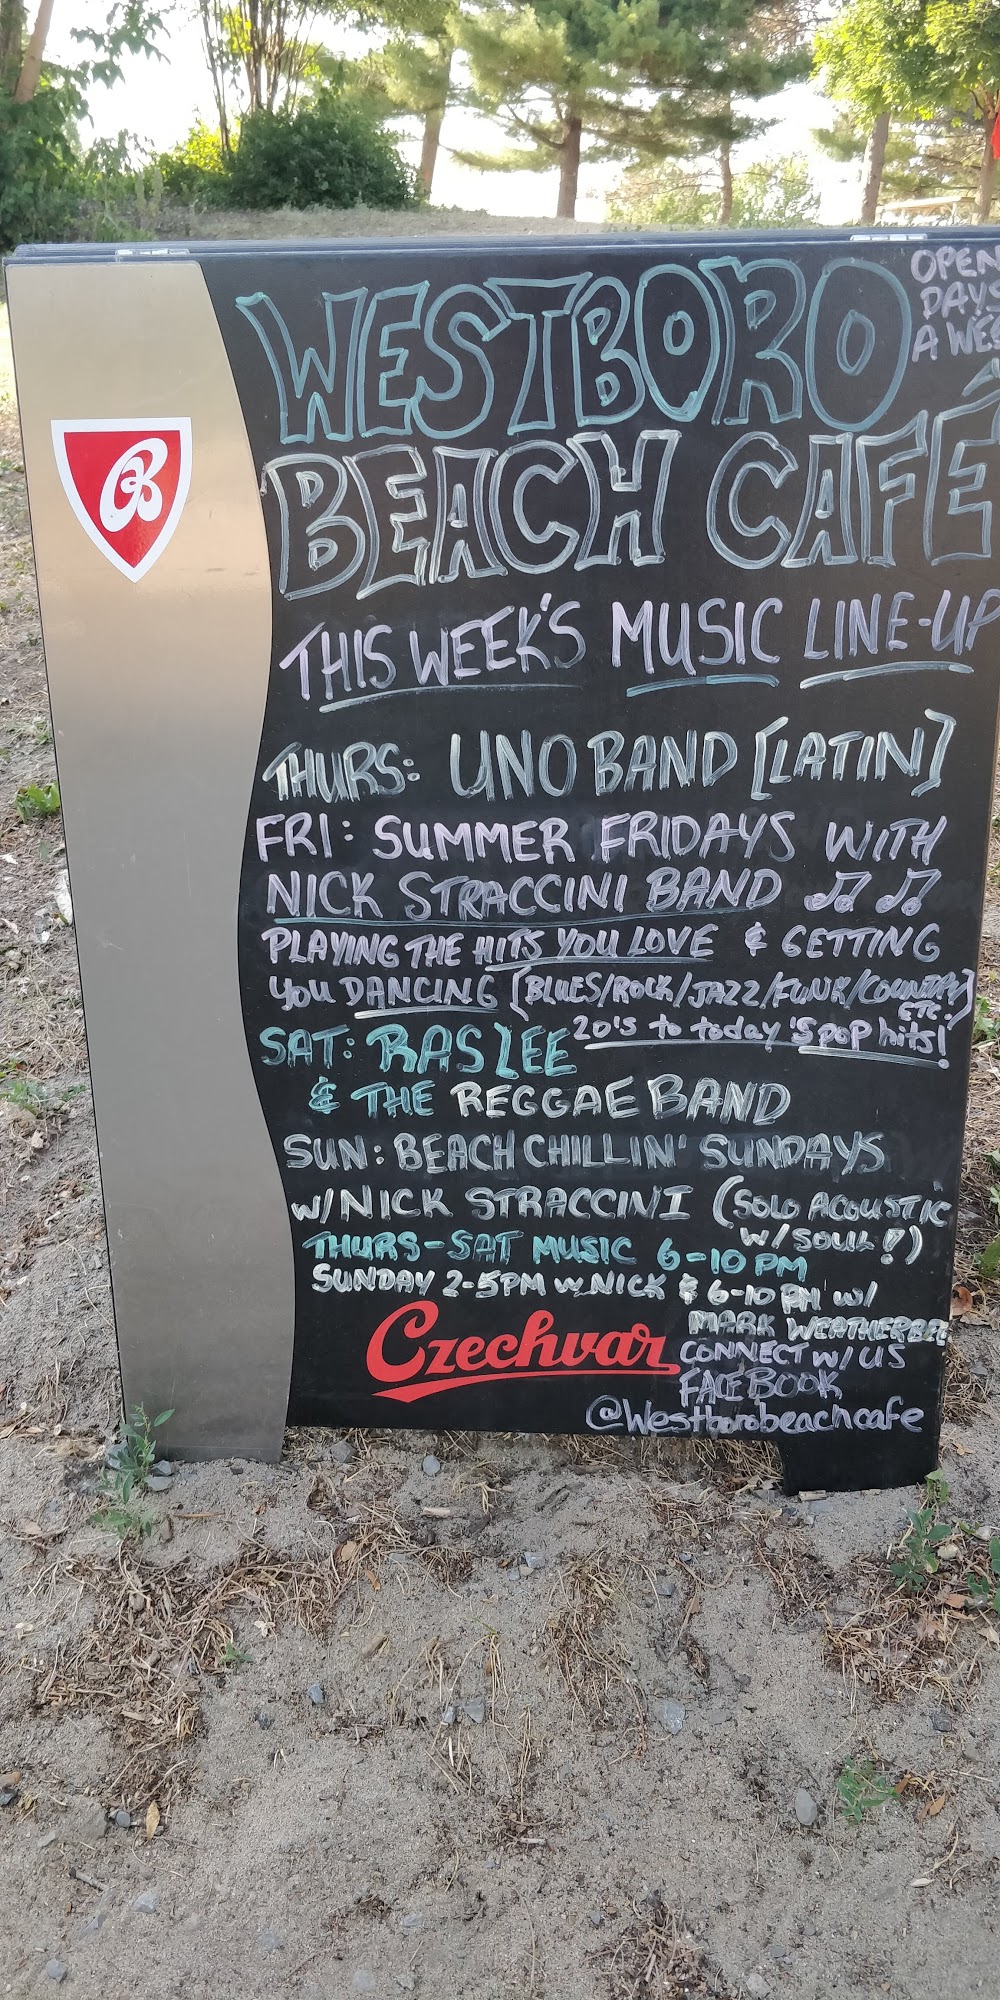 WESTBORO
OPEN
DAYS
A WEE
BEACH CAFÉ
B
THIS WEEK'S MUSIC LINE-UP
THURS: UNO BAND [LATIN]
FRI: SUMMER FRIDAYS WITH
NICK STRACCINI BAND
PLAYING THE HITS YOU LOVE & GETTING
YOU DANCING [BLUES/ROCK/JAZZ/FUNK/COUNTRY
ETC.]
20's to today's pop hits!
SAT: RAS LEE
& THE REGGAE BAND
SUN: BEACH CHILLIN' SUNDAYS
W/NICK STRACCINI (SOLO ACOUSTIC
W/SOUL!)
THURS-SAT MUSIC 6-10 PM
SUNDAY 2-5PM W NICK & 6-10 PM W/
MARK WEATHERBEE
Czechvar
CONNECT W/ US
FACEBOOK
@Westborobeachcafe